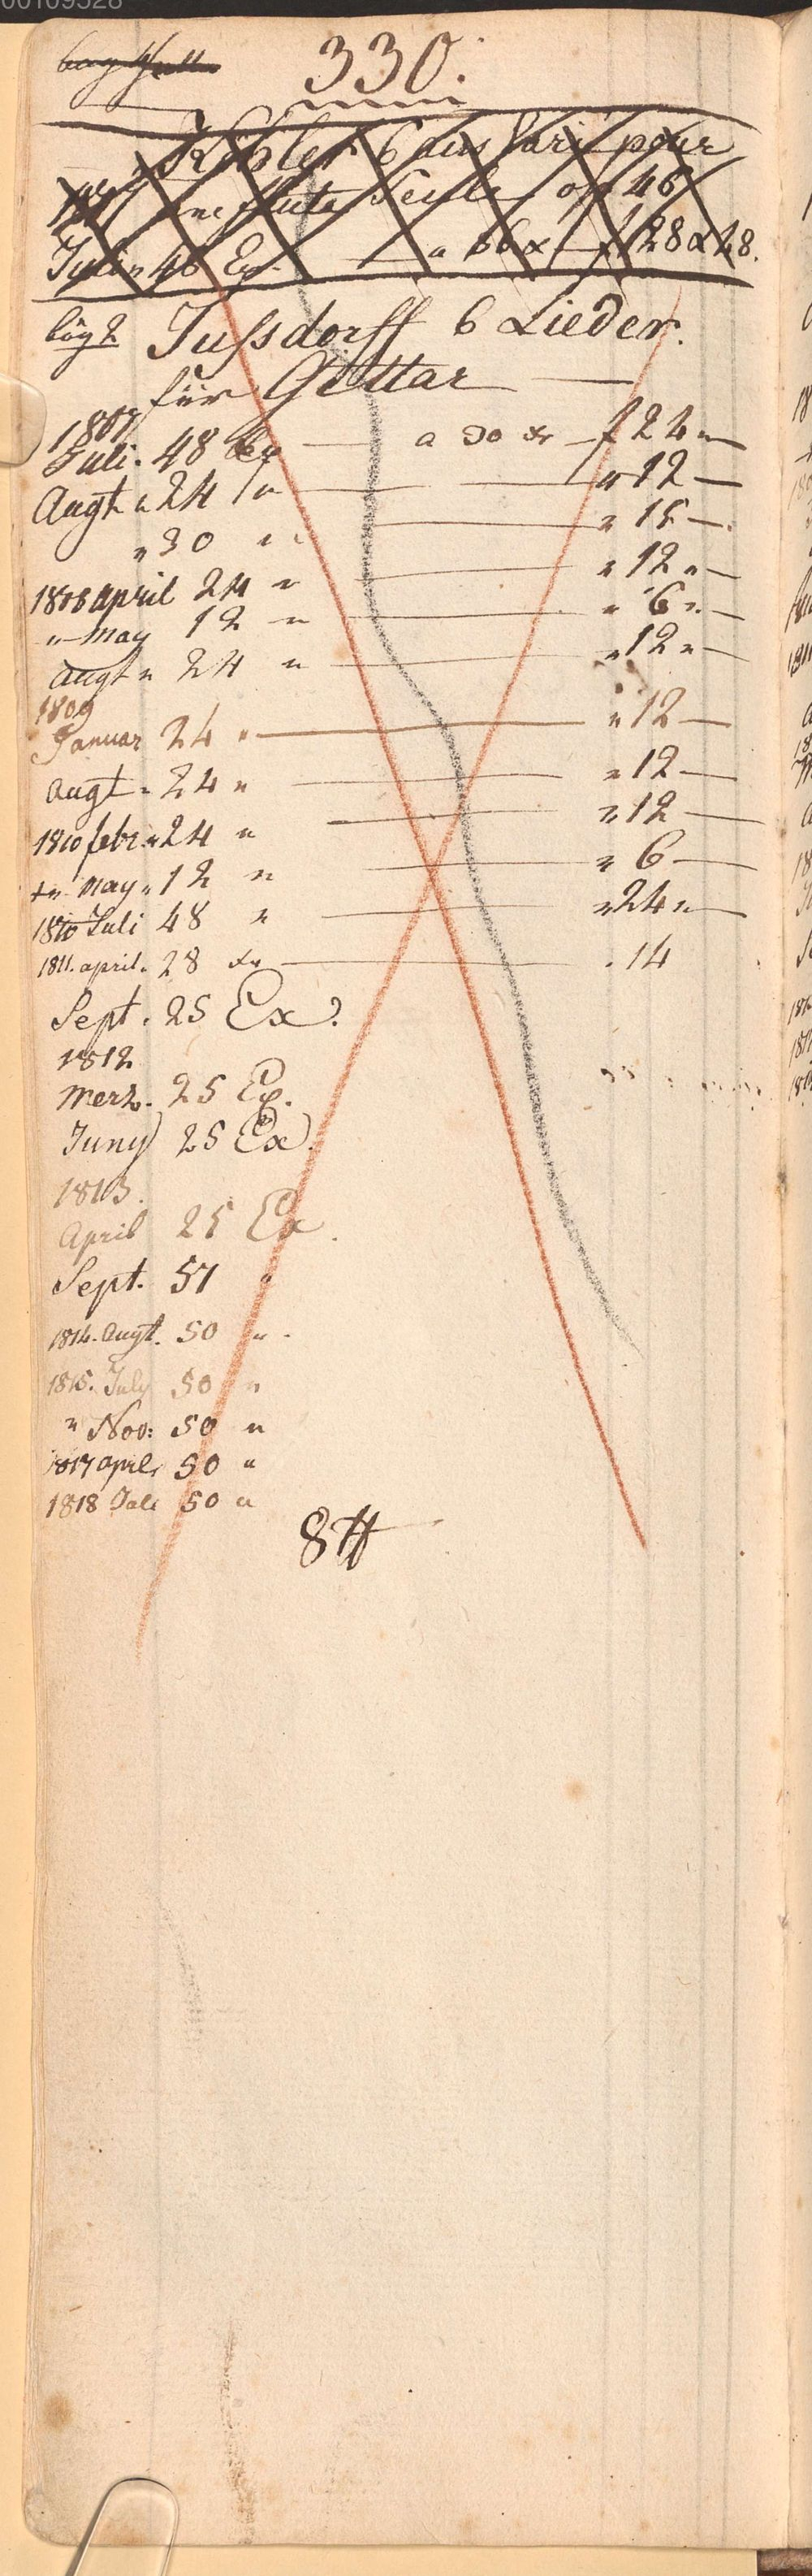 00109528
330.
Köhler 6 aus Vari pour
une flute Seule op 46
Juli " 48 Ex. — a 36 x — f 28 x 48.
Jussdorff 6 Lieder.
für Guittar —
1807
Juli. 48 Ex — a 30 xr — f 24 " —
Augt " 24 " — " 12 —
" 30 " — " 15 —.
1808 april 24 " — " 12 " —
" may 12 " — " 6 " —
Augt " 24 " — " 12 " —
1809
Januar 24 " — " 12 —
Augt " 24 " — " 12 —
1810 febr. " 24 " — " 12 —
" May " 12 " — " 6 —
1810 Juli 48 " — " 24 " —
1811. april. 28 — . 14
Sept. 25 Ex.
1812
Merz. 25 Ex.
Juny 25 Ex.
1813.
April 25 Ex.
Sept. 57 "
1814. Augt. 50 " .
1815. July 50 "
" Nov: 50 "
1817 april 50 "
1818 Juli 50 "
8 tt